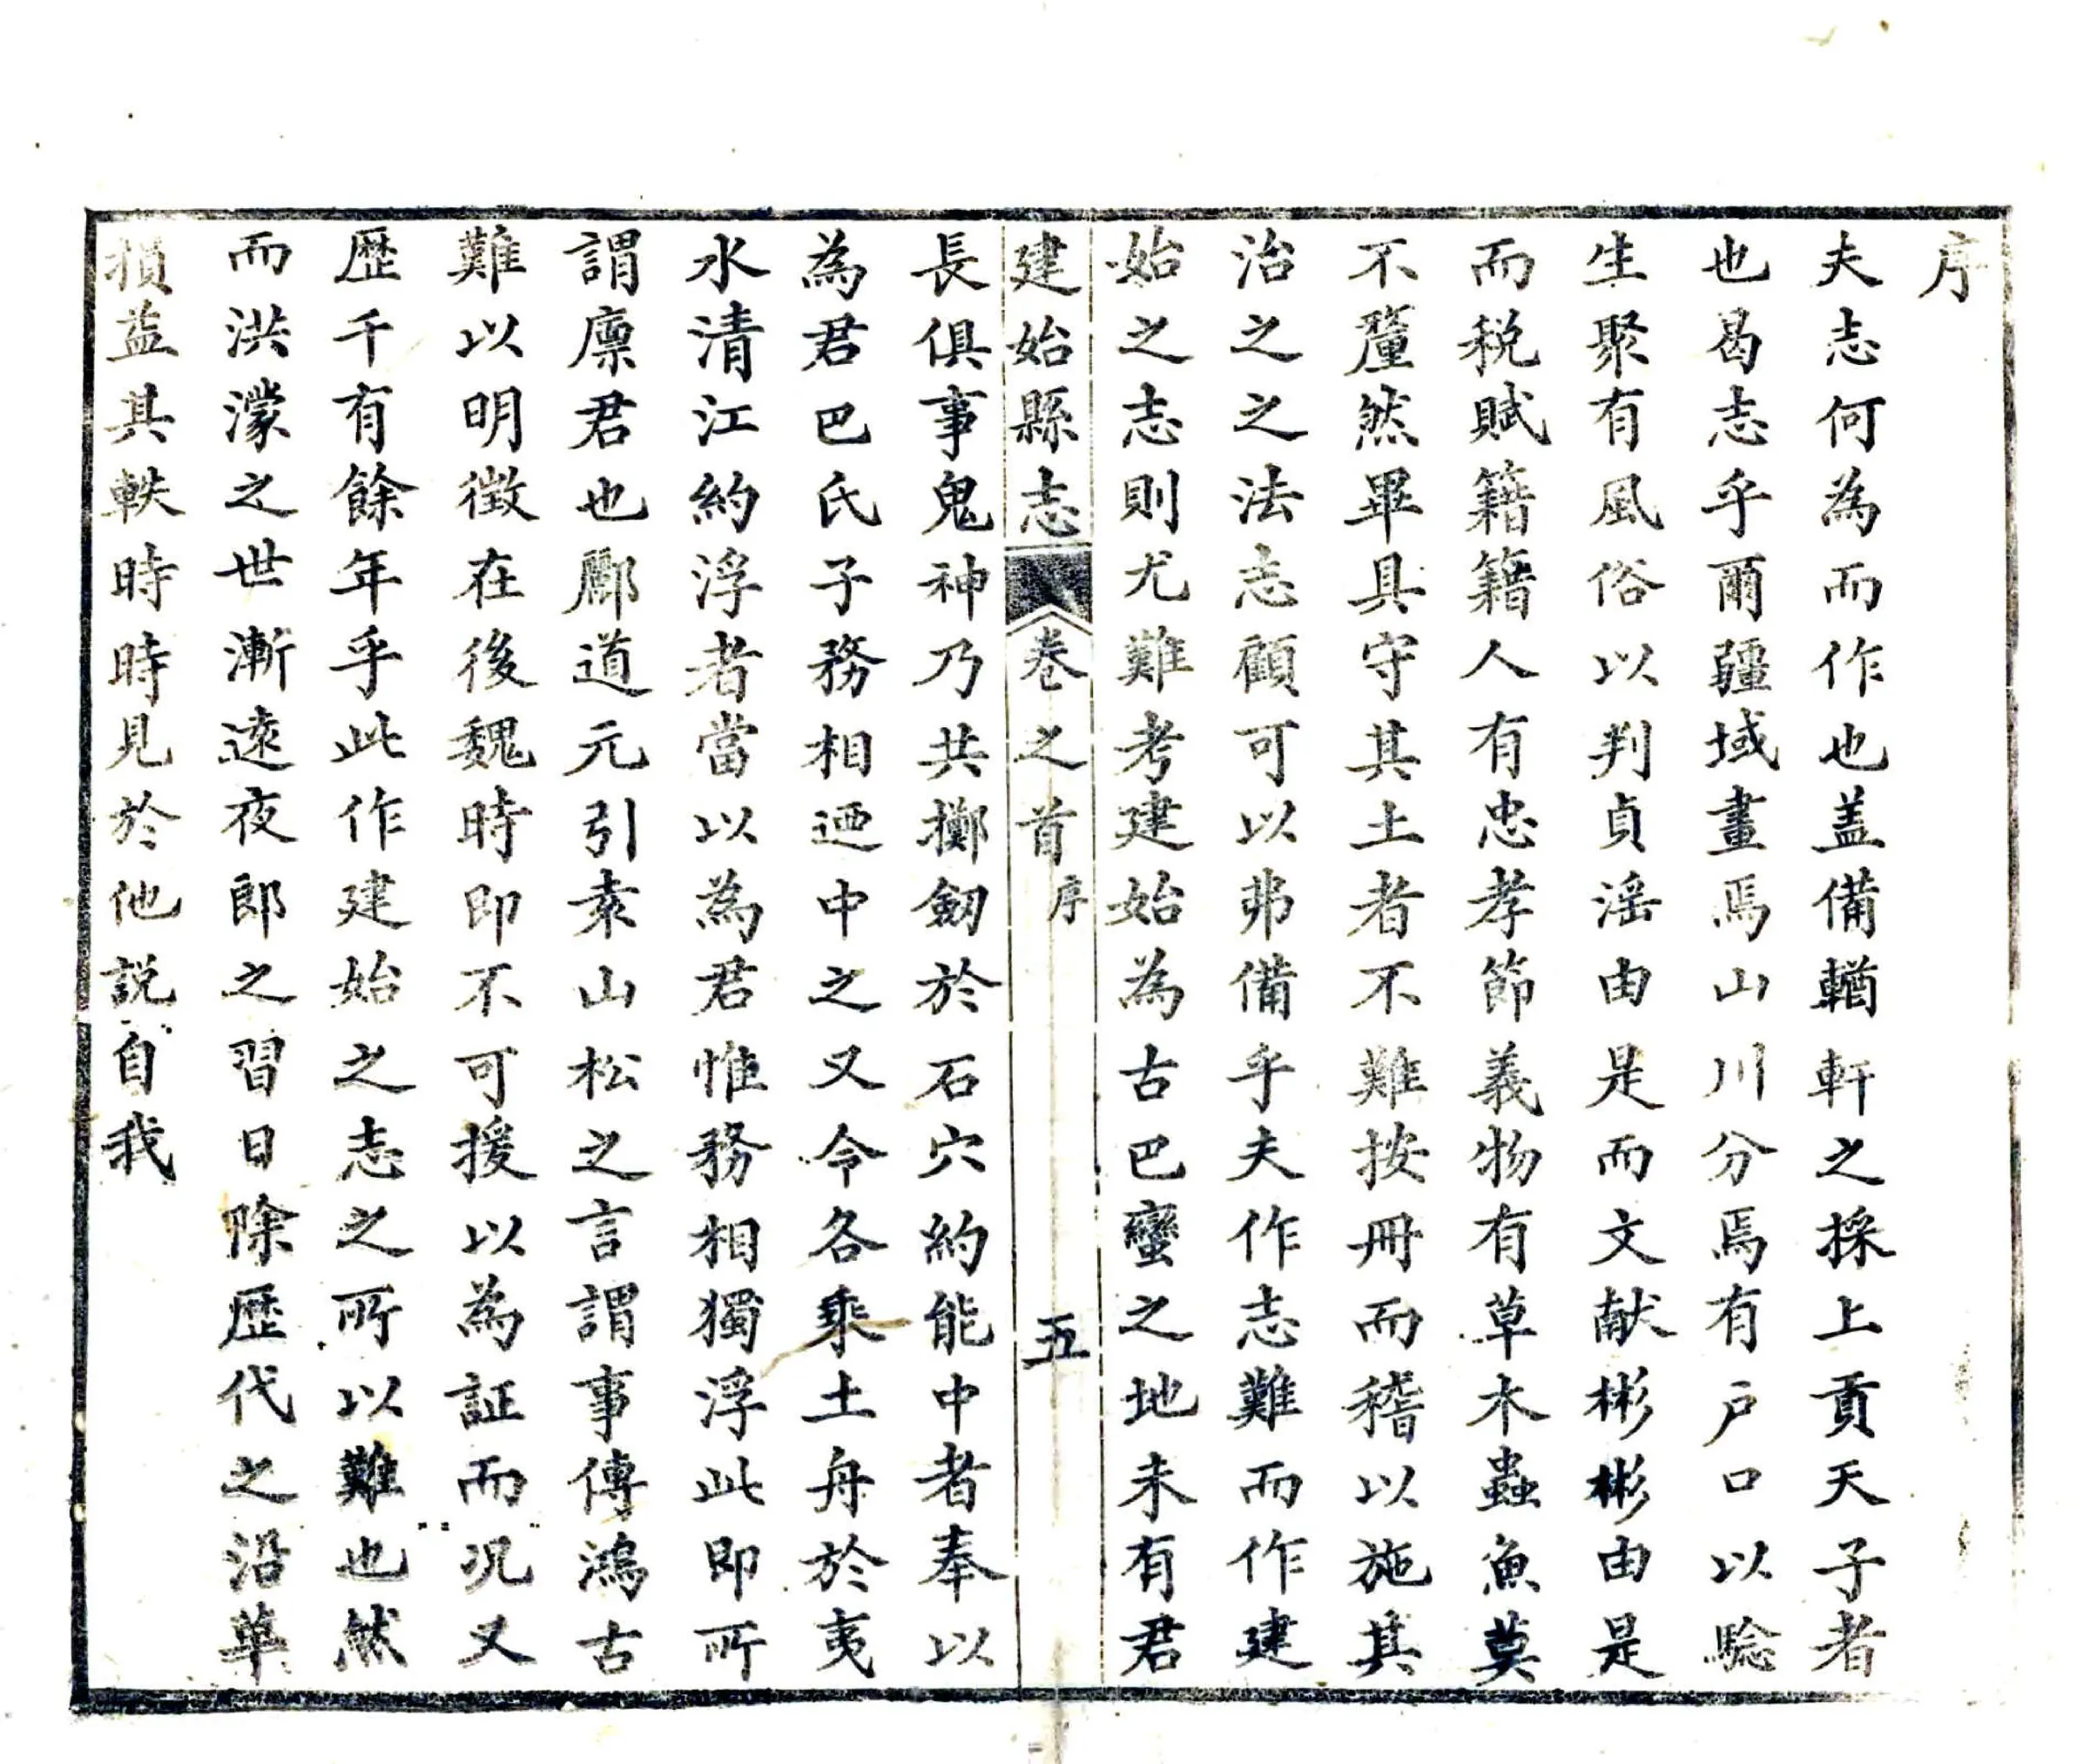 序
夫志何為而作也盖備輶軒之採上貢天子者
也曷志乎爾疆域畫焉山川分焉有戶口以驗
生聚有風俗以判貞淫由是而文献彬彬由是
而稅賦籍籍人有忠孝節義物有草木蟲魚莫
不釐然畢具守其土者不難按冊而稽以施其
治之之法志顧可以弗備乎夫作志難而作建
始之志則尤難考建始為古巴蠻之地未有君
建始縣志
卷之首
序
五
長俱事鬼神乃共擲劒於石穴約能中者奉以
為君巴氏子務相迺中之又令各乘土舟於夷
水清江約浮者當以為君惟務相獨浮此即所
謂廪君也酈道元引袁山松之言謂事傳鴻古
難以明徵在後魏時即不可援以為証而况又
歷千有餘年乎此作建始之志之所以難也然
而洪濛之世漸遠夜郎之習日除歷代之沿革
損益其軼時時見於他説自我